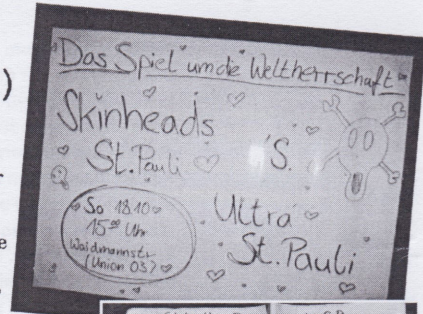 Das Spiel um die Weltherrschaft
Skinheads
St. Pauli
'S.
Ultra
St. Pauli
So 18.10
15⁰⁰ Uhr
Waidmannstr.
(Union 03)
)
r
e